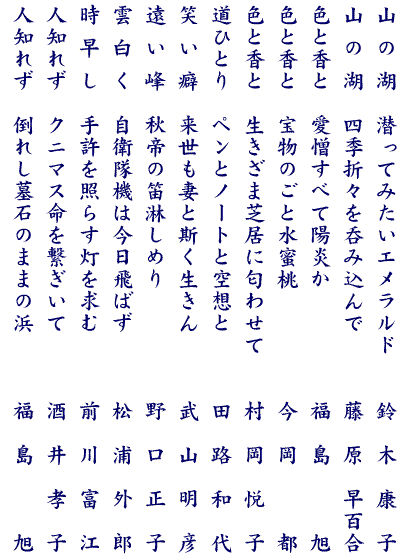 山の湖 潜ってみたいエメラルド 鈴木康子
山の湖 四季折々を呑み込んで 藤原早百合
色と香と 愛憎すべて陽炎か 福島旭
色と香と 宝物のごと水蜜桃 今岡都
色と香と 生きざま芝居に匂わせて 村岡悦子
道ひとり ペンとノートと空想と 田路和代
笑い癖 来世も妻と斯く生きん 武山明彦
遠い峰 秋帝の笛淋しめり 野口正子
雲白く 自衛隊機は今日飛ばず 松浦外郎
時早し 手許を照らす灯を求む 前川富江
人知れず クニマス命を繋ぎいて 酒井孝子
人知れず 倒れし墓石のままの浜 福島旭